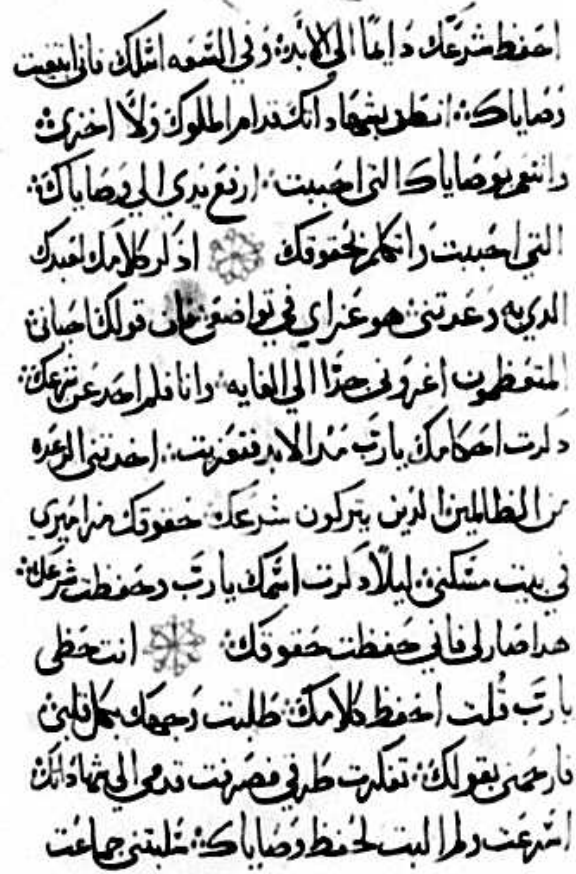 احفظ شرعك دايمًا الي الابد. وفي السعه اسلك فاني ابتغيت
وصاياك. انطق بشهاداتك قدام الملوك ولا اخزي
واتنعم بوصاياك التي احببت. ارفع يدي الي وصاياك.
التي احببت واتكلم بحقوقك اذكر كلامك لعبدك
الدي به وعدتني هو عزاي في تواضعي فان قولك احياني
المتعظمون اغروني جدًا الي الغايه. وانا فلم احد عن شرعك.
دكرت احكامك يارب مند الابد فتعزيت. اخدتني الرعده
من الظالمين الدين يتركون شرعك حقوقك مزاميري
في بيت مسكني. ليلًا دكرت اسمك يارب وحفظت شرعك.
هدا صار لي فاني حفظت حقوقك. انت حظي
يارب قلت احفظ كلامك. طلبت وجهك بكل قلبي
فارحمني بقولك. تفكرت طرقي فصرفت قدمي الي شهاداتك
اسرعت ولم البت لحفظ وصاياك. سلبتني جماعت